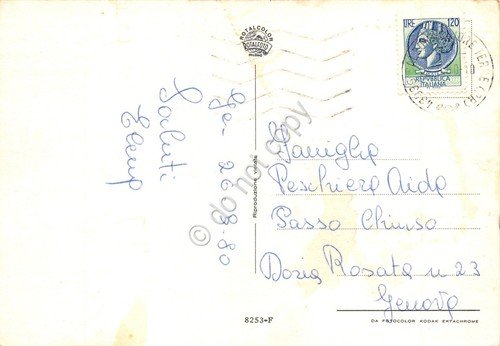 ROTALCOLOR
ROTALFOTO
MILANO
LIRE 120
REPUBBLICA
ITALIANA
Ge- 26-8-80
Saluti
Elena
Riproduzione vietata
Famiglia
Peschiera Aida
Passo Chiuso
Doria Rosata n 23
Genova
8253-F
DA FOTOCOLOR KODAK EKTACHROME
do not copy